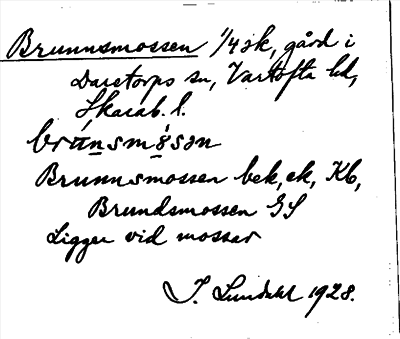 Brunnsmossen 1/4 sk, gård i
Daretorps sn, Vartofta hd,
Skarab. l.
brúnsmòsən
Brunnsmossen bek, ek, Kb,
Brundsmossen GS
Ligger vid mossar
I. Lundahl 1928.